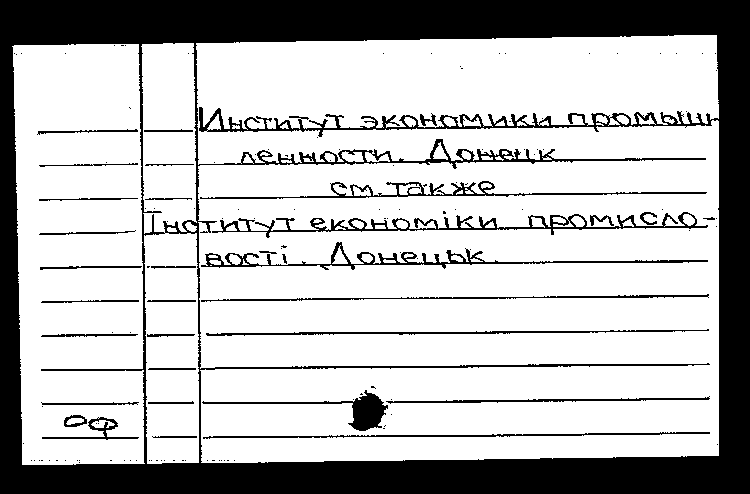 Институт экономики промыш-
ленности. Донецк
см. также
Інститут економіки промисло-
вості. Донецьк.
оф